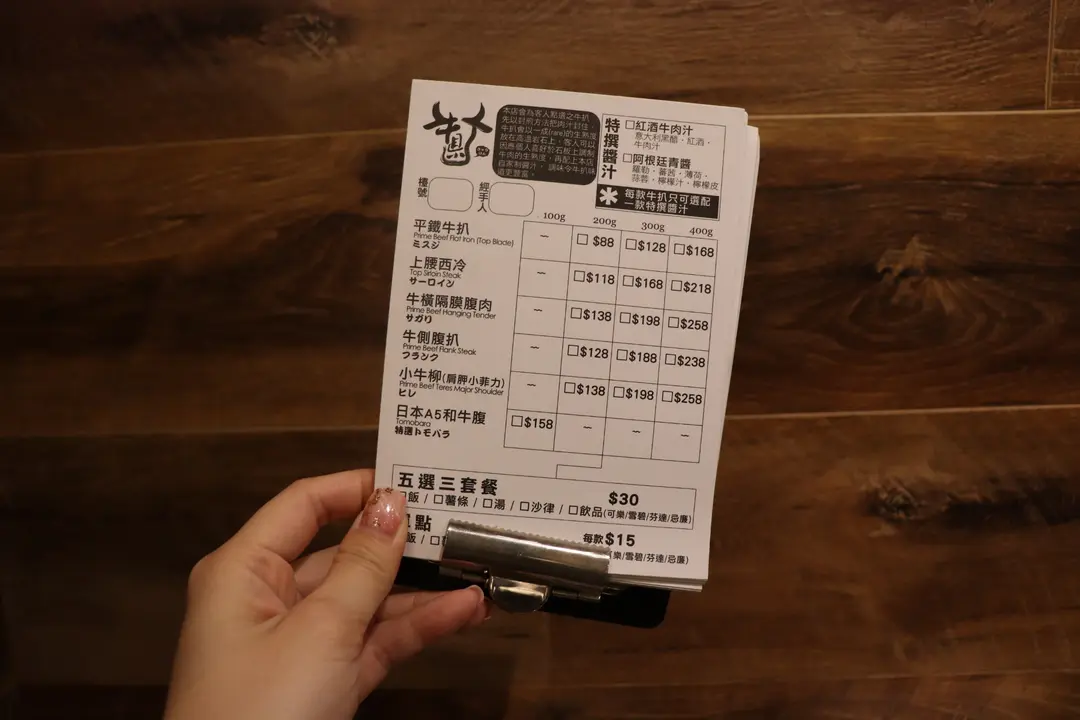 本店會為客人點選之牛扒
先以封煎方法把肉汁封住,
牛扒會以一成(rare)的生熟度
放在高溫岩石上,客人可以
因應個人喜好於石板上調製
牛肉的生熟度,再配上本店
自家制醬汁,調味令牛扒味
道更豐富。
特撰醬汁
□紅酒牛肉汁
意大利黑醋、紅酒、
牛肉汁
□阿根廷青醬
羅勒、蕃茜、薄荷、
蒜蓉、檸檬汁、檸檬皮
* 每款牛扒只可選配
一款特撰醬汁
檯號
經手人
100g 200g 300g 400g
平鐵牛扒
Prime Beef Flat Iron (Top Blade)
ミスジ
– □ $88 □$128 □$168
上腰西冷
Top Sirloin Steak
サーロイン
– □$118 □$168 □$218
牛橫隔膜腹肉
Prime Beef Hanging Tender
サガリ
– □$138 □$198 □$258
牛側腹扒
Prime Beef Flank Steak
フランク
– □$128 □$188 □$238
小牛柳(肩胛小菲力)
Prime Beef Teres Major Shoulder
ヒレ
– □$138 □$198 □$258
日本A5和牛腹
Tomobara
特選トモバラ
□$158 – – –
五選三套餐 $30
□飯 / □薯條 / □湯 / □沙律 / □飲品(可樂/雪碧/芬達/忌廉)
點 每款$15
飯 / □ 樂/雪碧/芬達/忌廉)